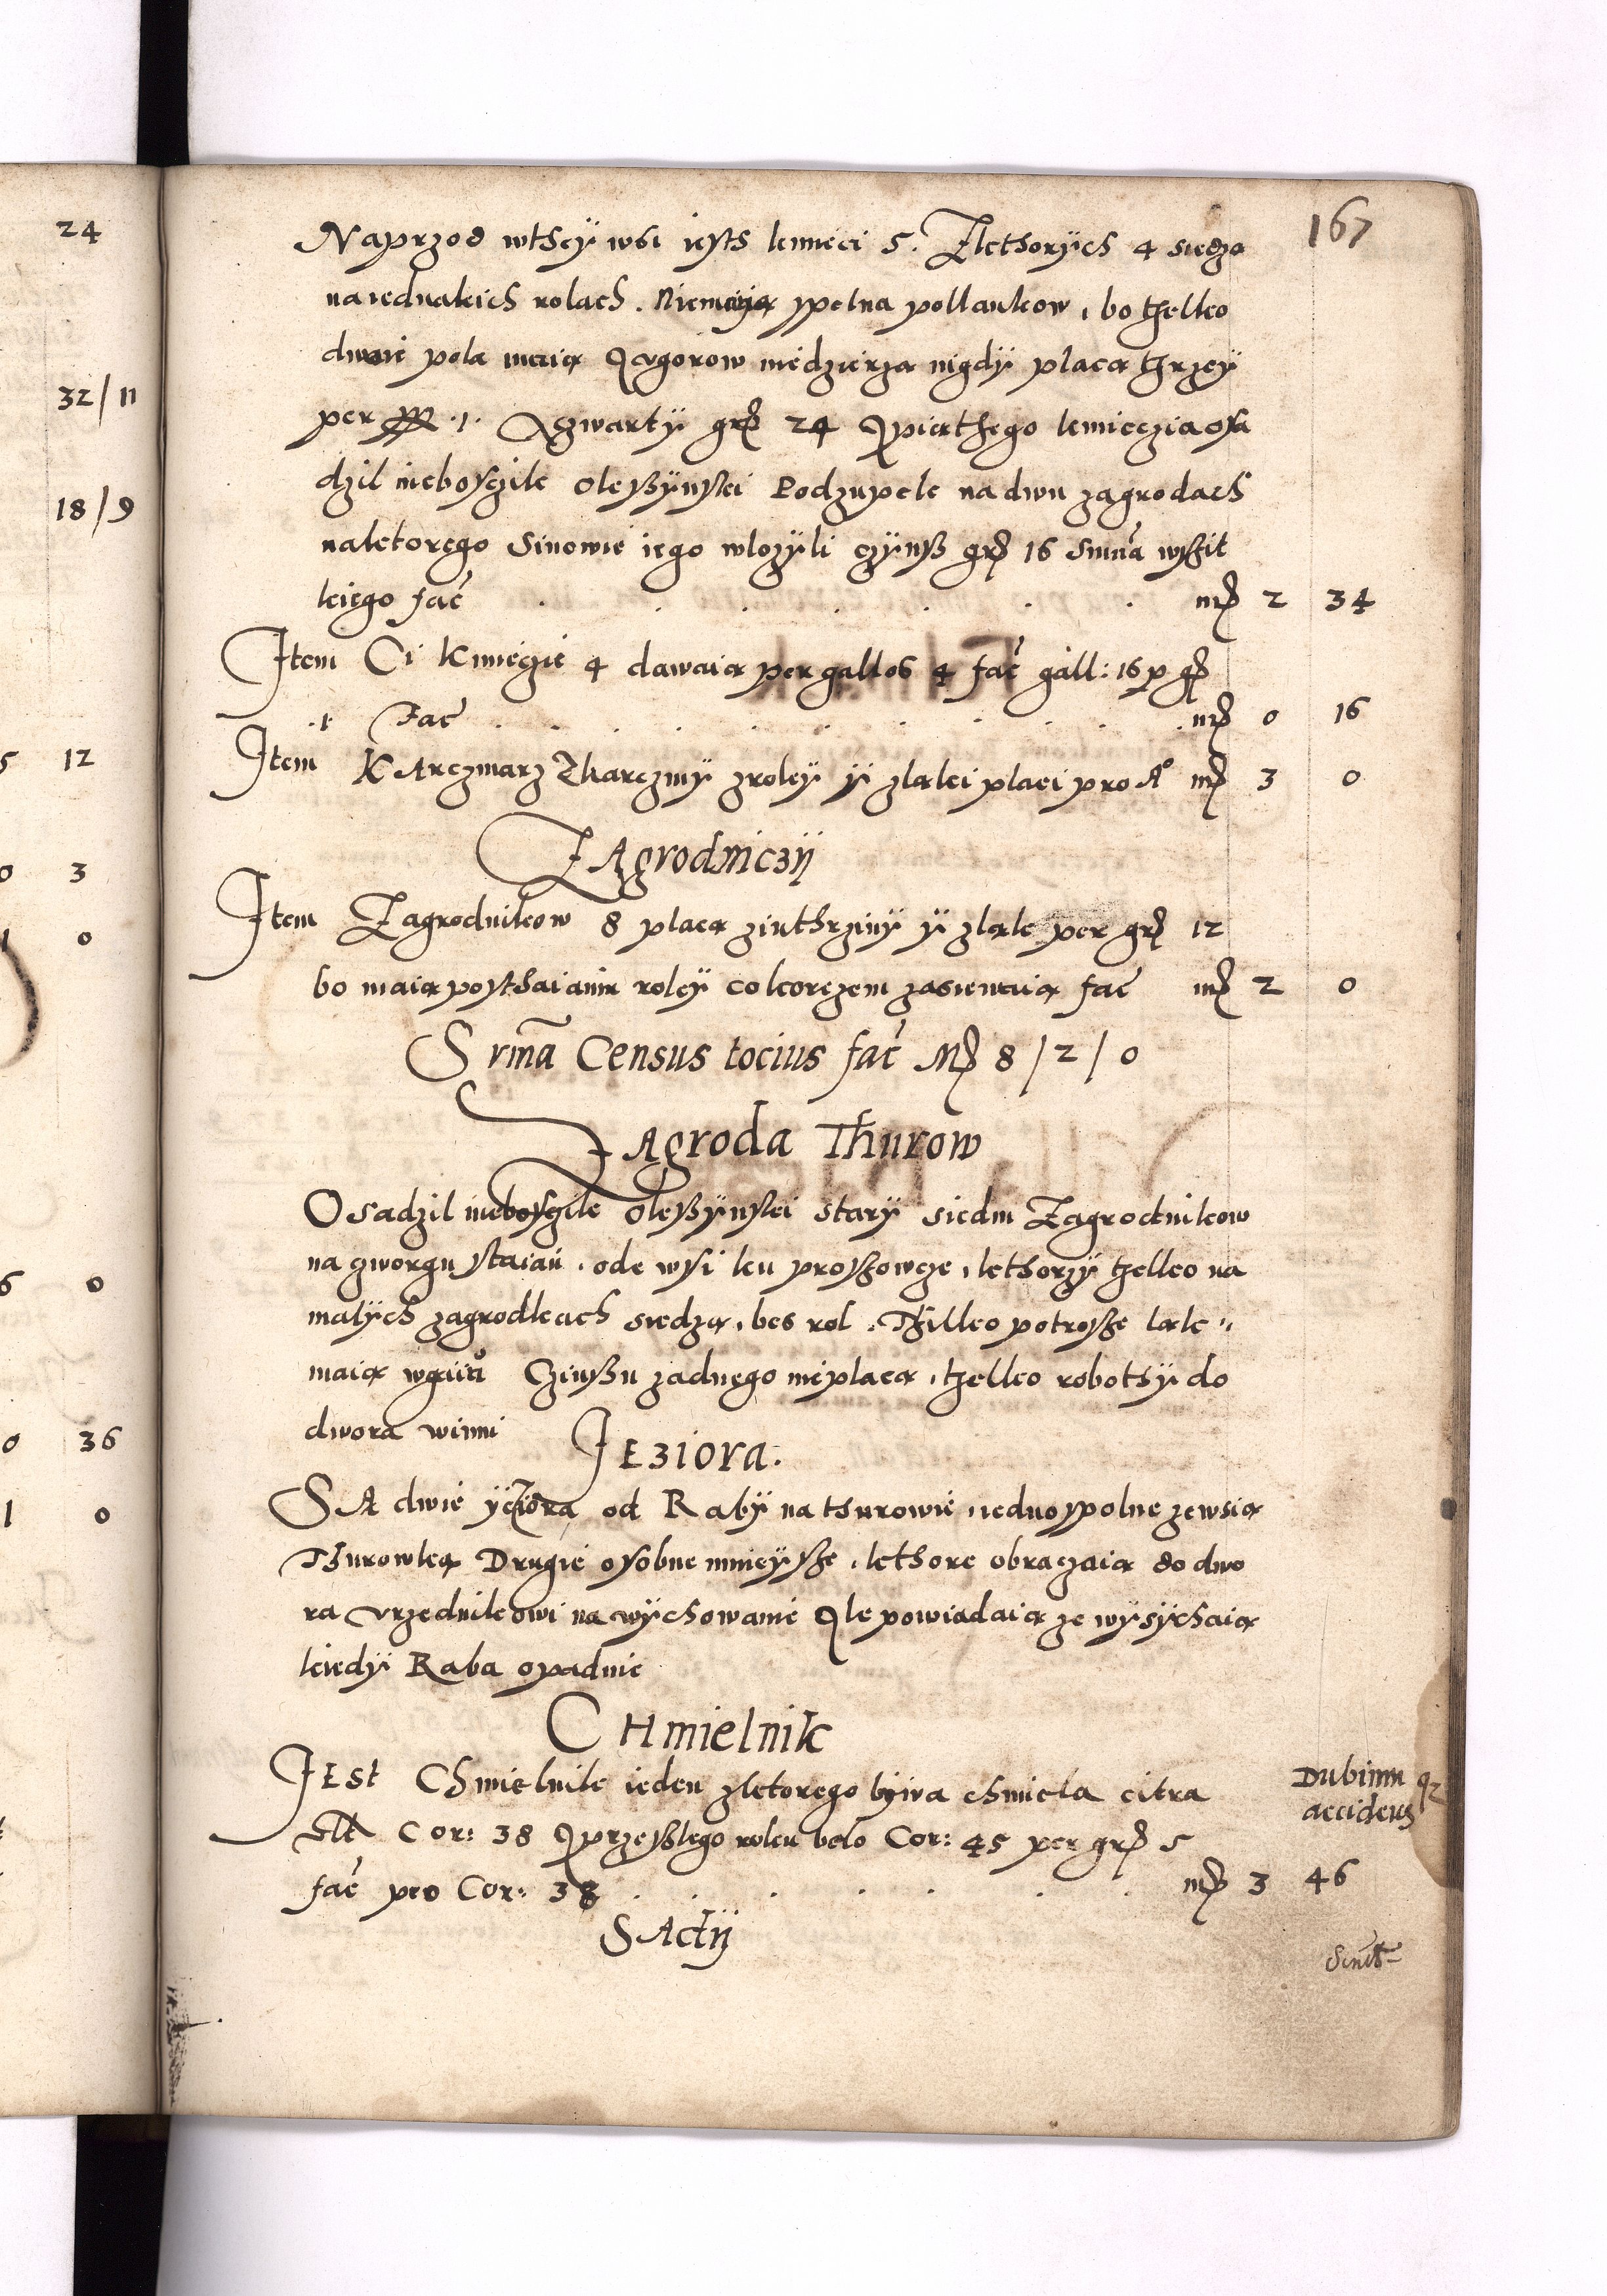 167
Naprzod wthey wsi iesth kmieci 5. Zkthorÿch 4 siedza
na iednakich rolach. Niemaią spelna pollankow, bo tzelko
dwoie pola maią Qugorow niedzierza nigdÿ placą thrzeÿ
per m 1. Czwartÿ grß 24 Q piąthego kmieczia osa
dzil nieboszczik Oleßÿnski Podzupek na dwu zagrodach
naktorego Sinowie iego wlozÿli czÿnß grß 16 Suma wszit
kiego fac . . . . . . . mrß 2 34
Item Ci Kmiezie 4 dawaią per gallos 4 fac gall: 16 p gß
1 Fac . . . . . . . mrß 0 16
Item KArczmarz Zkarczmÿ zroleÿ ÿ zląki placi pro Aº mß 3 0
ZAgrodniczÿ
Item Zagrodnikow 8 placą zinthrzinÿ ÿ ząk per grß 12
bo maią posthaianiu roleÿ co korczem zasiewaią fac mß 2 0
Suma Census tocius fac Mß 8 / 2 / 0
ZAgroda Thurow
Osadzil nieboszczik Oleßÿnski starÿ siedm Zagrodnikow
na czworgu staian, ode wsi ku proszowcze, kthorzÿ tzelko na
malÿch zagrodkach siedzą, bes rol. Tzilko potrosze ląk
maią wgaiu Czinßu zadnego nieplacą, tzelko robothÿ do
dwora winni
JEziora.
SA dwie yeziora od Rabÿ na thurowie, iedno spolne zewsią
Thurowką Drugie osobne mnieÿsze, kthore obraczaią do dwo
ra vrzednikowi na wÿchowanie Ale powiadaią ze wÿsÿchaią
kiedÿ Raba opadnie
CHmielnik
JEst Chmielnik ieden zktorego bÿwa chmiela citra
vlt Cor: 38 Q przeßlego roku belo Cor: 45 per grß 5
fac pro Cor: 38 . . . . . . mß 3 46
Dubium qz
accidens
SActÿ
24
32/11
18/9
5 12
0 3
1 0
6 0
0 36
1 0